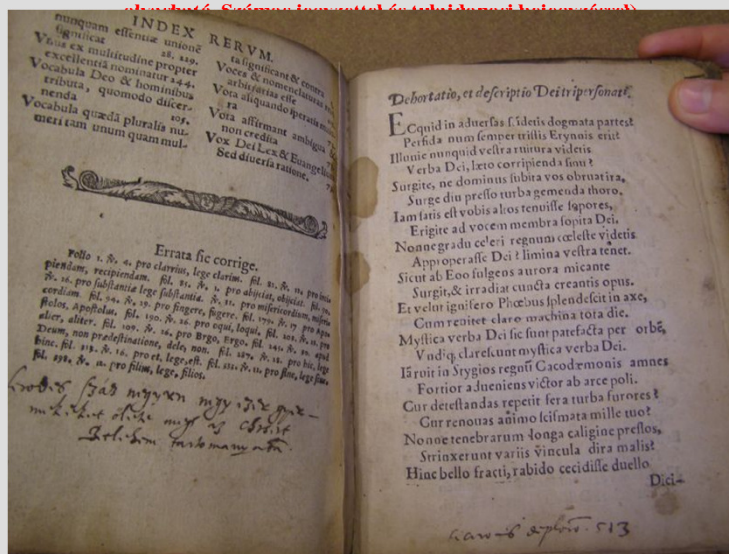 INDEX RERVM.
nunquam essentiæ unionē
significat 28. 229.
Vnus ex multitudine propter
excellentiā nominatur 244.
Vocabula Deo & hominibus
tributa, quomodo discer-
nenda 105.
Vocabula quædā pluralis nu-
meri tam unum quam mul-
ta significant & contra
Voces & nomenclaturas
arbitrarias esse
Vota aliquando speratis
ra
Vota affirmant ambigua
non credita
Vox Dei Lex & Euangelium
Sed diuersa ratione.
Errata sic corrige.
Folio 1. & 4. pro clarrius, lege clarim. fol. 21. &. 11. pro
piendam, recipiendam. fol. 25. &. 1. pro abijciat, objiciat.
&. 26. pro substantia lege substantiæ. &. 31. pro misericordium,
cordiam. fol. 94. &. 19. pro fingere, fugere. fol. 179. &. 17 pro Apo
stolos, Apostolus. fol. 190. &. 26. pro equi, loqui. fol. 202. &. 12. pro
alier, aliter. fol. 209. &. 16. pro Brgo, Ergo. fol. 245. &. 20. apud
Deum, non prædestinatione, dele, non. fol. 287. &. 18. pro bis, lege
hinc. fol. 318. &. 16. pro et, lege, est. fol. 331. &. 11. pro sine, lege
fol. 338. &. 11. pro filim, lege, filios.
Dehortatio, et descriptio Dei tripersonati.
ECquid in aduersas fidetis dogmata partes?
Perfida num semper tristis Erynnis erit?
Illonie nunquid vestra ruitura videtis
Verba Dei, læto corripienda sinu?
Surgite, ne dominus subita vos obruat ira,
Surge diu presso turba gemenda thoro.
Iam satis est vobis altos tenuisse sopores,
Erigite ad vocem membra sopita Dei.
Nonne gradu celeri regnum cœleste videtis
Appropérasse Dei? limina vestra tenet.
Sicut ab Eoo fulgens aurora micante
Surgit, & irradiat cuncta creantis opus.
Et velut ignifero Phœbus splendescit in axe,
Cum renitet claro machina tota die.
Mystica verba Dei sic sunt patefacta per orbē,
Vndiq; clarescunt mystica verba Dei.
Iā ruit in Stygios regnū Cacodæmonis amnes
Fortior adueniens victor ab arce poli.
Cur detestandas repetit fera turba furores?
Cur renouas animo scismata mille tuo?
Nonne tenebrarum longa caligine pressos,
Strinxerunt variis vincula dira malis?
Hinc bello fracti, rabido cecidisse duello
Dici-